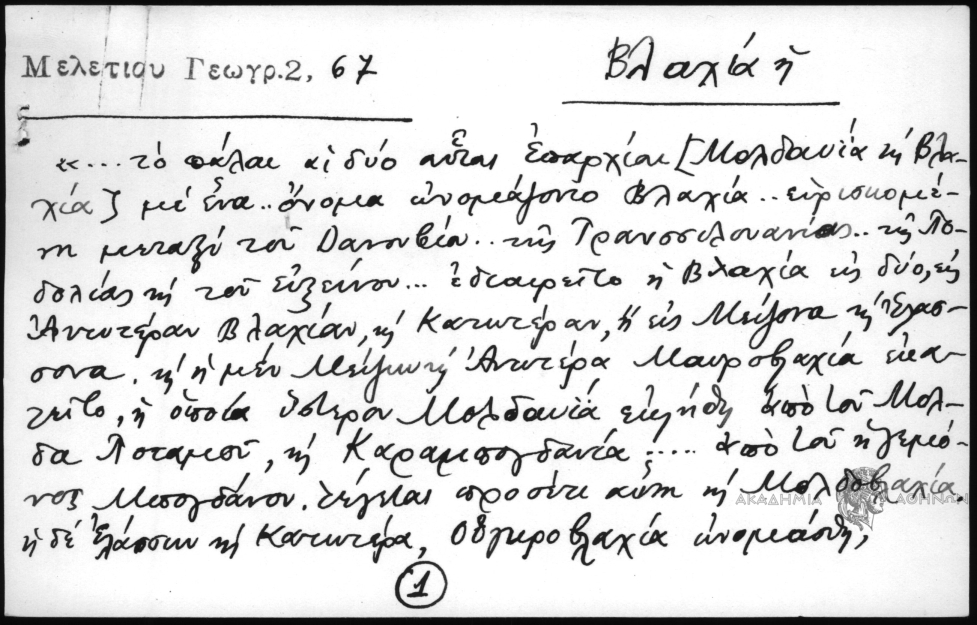 Μελετίου Γεωγρ.2, 67
Βλαχία ἡ
«... τὸ πάλαι αἱ δύο αὗται Ἐπαρχίαι [Μολδαυΐα κὴ Βλα-
χία] μὲ ἕνα.. ὄνομα ὠνομάζοντο Βλαχία.. εὑρισκομέ-
νη μεταξὺ τοῦ Δανουβίου.. τῆς Τρανσσιλουανίας.. τῆς Πο-
δολίας κὴ τοῦ Εὐξείνου... ἐδιαιρεῖτο ἡ Βλαχία εἰς δύο, εἰς
Ἀνωτέραν Βλαχίαν, κὴ Κατωτέραν, ἢ εἰς Μείζονα κὴ Ἐλάσ-
σονα. κὴ ἡ μὲν Μείζων κὴ Ἀνωτέρα Μαυροβλαχία ἐκα-
λεῖτο, ἡ ὁποία ὕστερον Μολδαυΐα ἐκλήθη ἀπὸ τοῦ Μολ-
δα Ποταμοῦ, κὴ Καραμπογδανία ..... ἀπὸ τοῦ ἡγεμό-
νος Μπογδάνου. λέγεται προσέτι αὕτη κὴ Μολδοβλαχία.
ἡ δὲ Ἐλάσσων κὴ Κατωτέρα, Οὑγκροβλαχία ὠνομάσθη,
1
ΑΚΑΔΗΜΙΑ ΑΘΗΝΩΝ